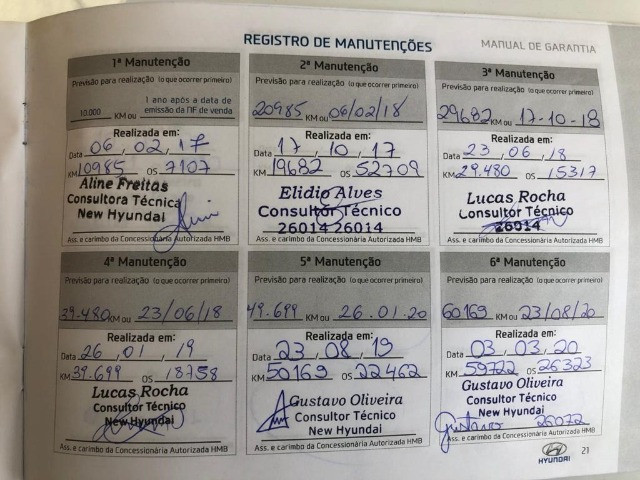 REGISTRO DE MANUTENÇÕES
MANUAL DE GARANTIA
1ª Manutenção
Previsão para realização (o que ocorrer primeiro)
10.000 KM ou 1 ano após a data de emissão da NF de venda
Realizada em:
Data 06, 02, 17
KM 10985 OS 7107
Aline Freitas
Consultora Técnica
New Hyundai
Ass. e carimbo da Concessionária Autorizada HMB
2ª Manutenção
Previsão para realização (o que ocorrer primeiro)
20985 KM ou 06/02/18
Realizada em:
Data 17, 10, 17
KM 19682 OS 52709
Elidio Alves
Consultor Técnico
26014 26014
Ass. e carimbo da Concessionária Autorizada HMB
3ª Manutenção
Previsão para realização (o que ocorrer primeiro)
29682 KM ou 17-10-18
Realizada em:
Data 23, 06, 18
KM 29.480 OS 15317
Lucas Rocha
Consultor Técnico
26014
Ass. e carimbo da Concessionária Autorizada HMB
4ª Manutenção
Previsão para realização (o que ocorrer primeiro)
39.480 KM ou 23/06/18
Realizada em:
Data 26, 01, 19
KM 39.699 OS 18758
Lucas Rocha
Consultor Técnico
New Hyundai
Ass. e carimbo da Concessionária Autorizada HMB
5ª Manutenção
Previsão para realização (o que ocorrer primeiro)
49.699 KM ou 26.01.20
Realizada em:
Data 23, 08, 19
KM 50169 OS 22462
Gustavo Oliveira
Consultor Técnico
New Hyundai
Ass. e carimbo da Concessionária Autorizada HMB
6ª Manutenção
Previsão para realização (o que ocorrer primeiro)
60169 KM ou 23/08/20
Realizada em:
Data 03, 03, 20
KM 59722 OS 26323
Gustavo Oliveira
Consultor Técnico
New Hyundai
26072
Ass. e carimbo da Concessionária Autorizada HMB
HYUNDAI
21